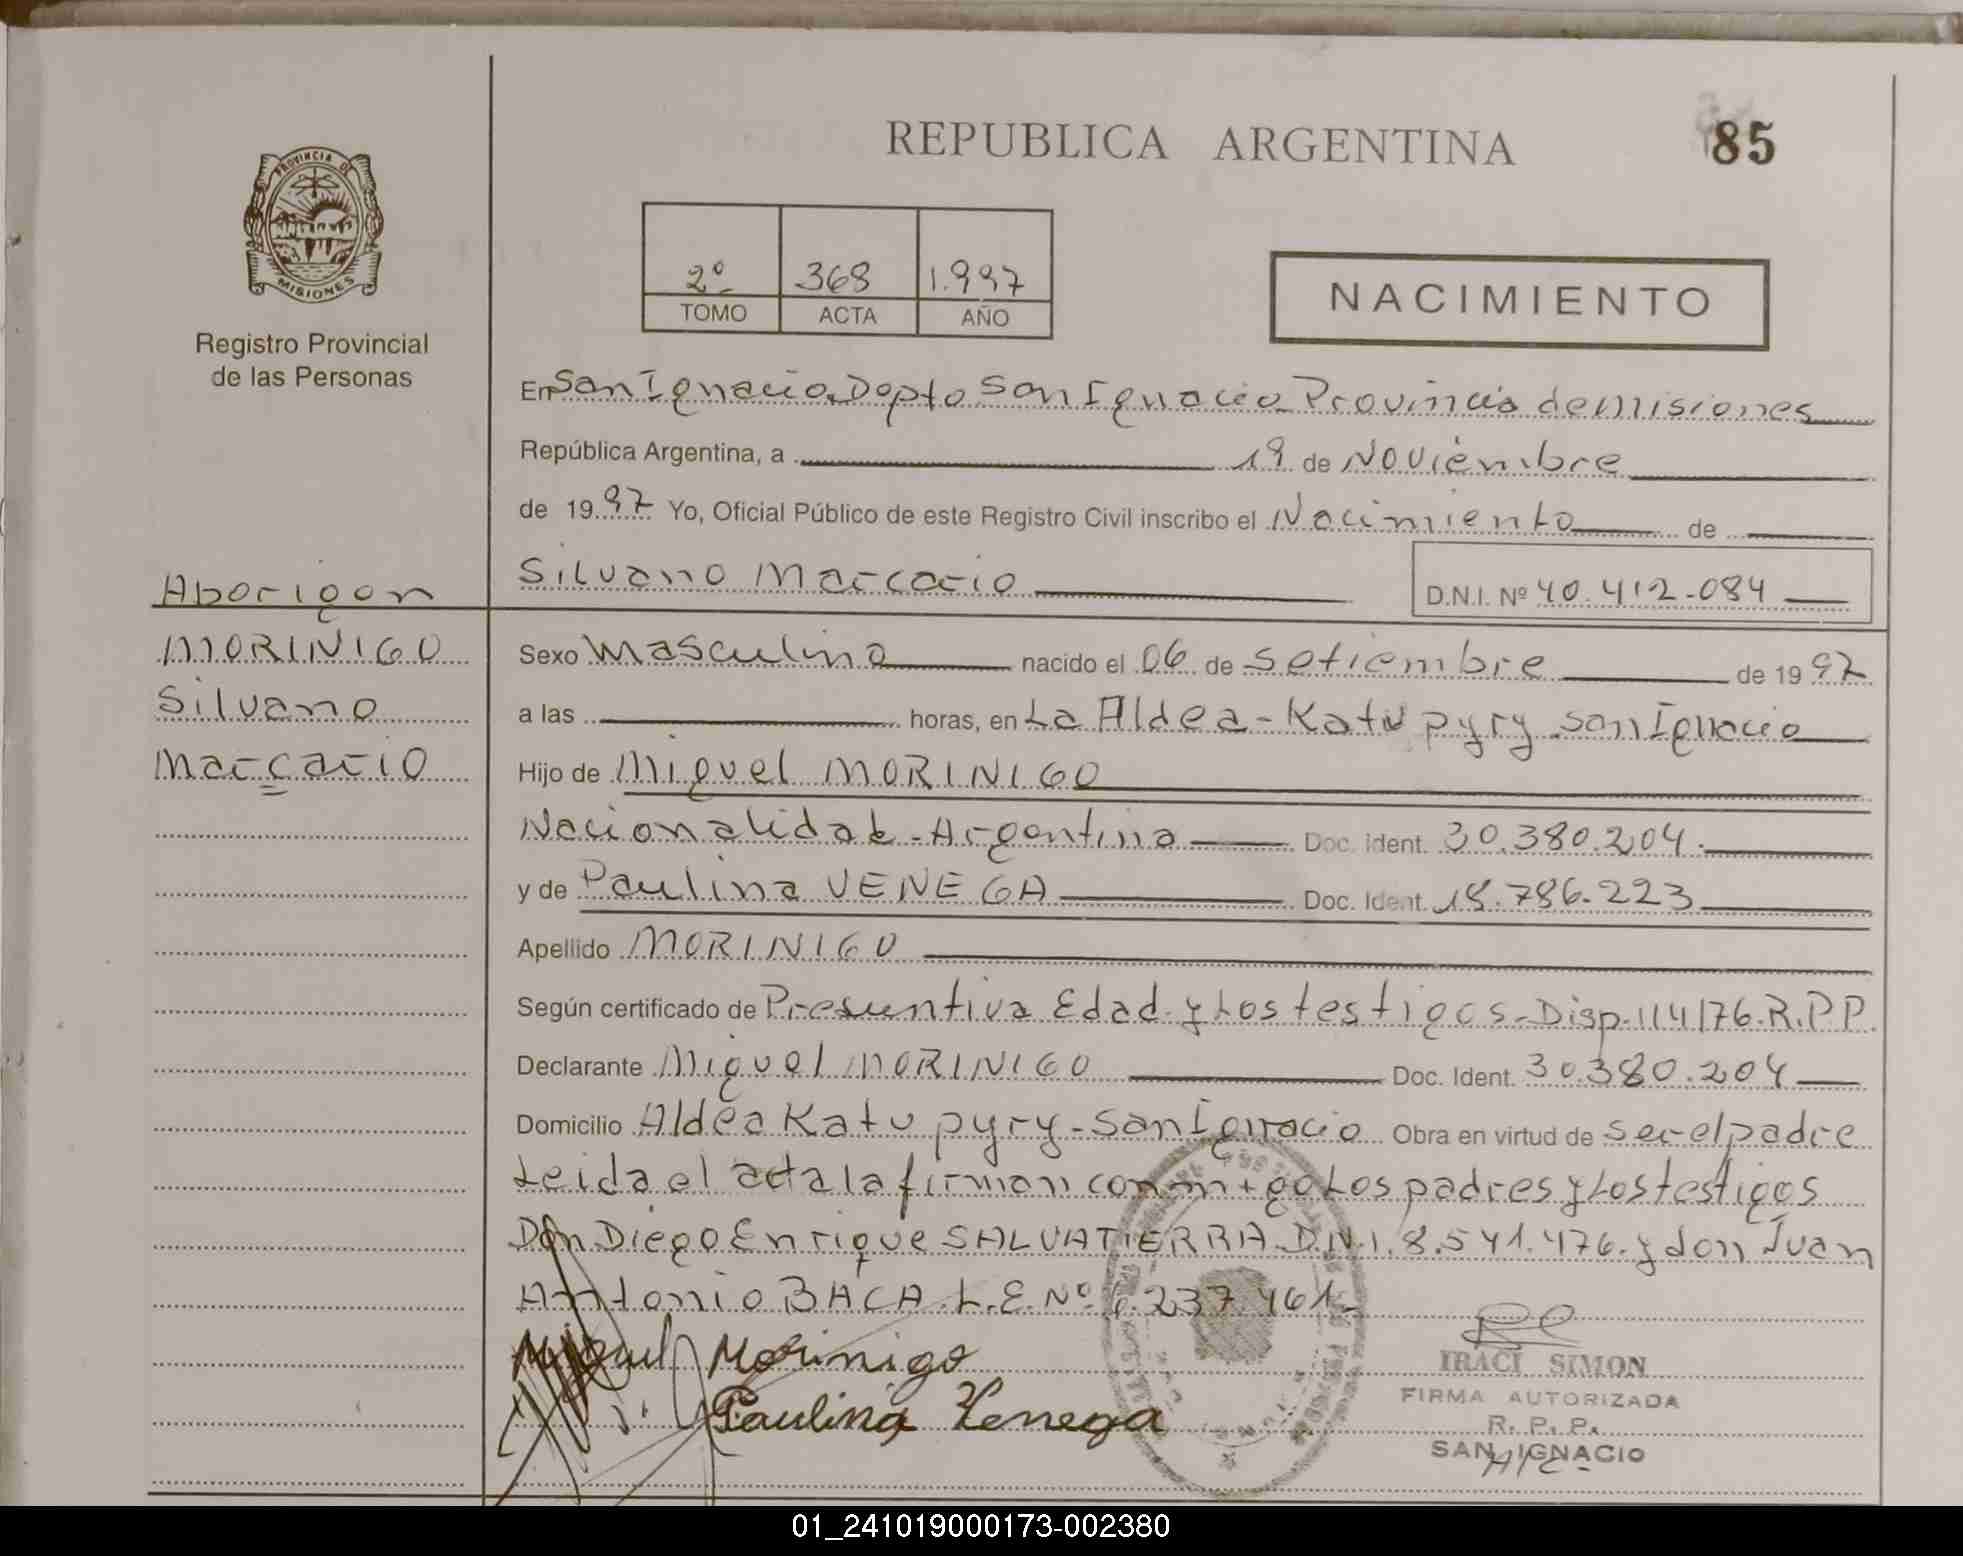 REPUBLICA ARGENTINA
85
PROVINCIA DE
MISIONES
Registro Provincial
de las Personas
2º 368 1.997
TOMO ACTA AÑO
NACIMIENTO
En San Ignacio, Dpto San Ignacio Provincia de misiones
República Argentina, a 19 de Noviembre
de 1997 Yo, Oficial Público de este Registro Civil inscribo el Nacimiento de
Silvano Marcario
D.N.I. Nº 40.412.084
Aborigen
MORINIGO
Silvano
Marcario
Sexo Masculino nacido el 06 de Setiembre de 1997
a las horas, en La Aldea - Katu pyry San Ignacio
Hijo de Miguel MORINIGO
Nacionalidad - Argentina Doc. Ident. 30.380.204.
y de Paulina VENEGA Doc. Ident. 18.786.223
Apellido MORINIGO
Según certificado de Presuntiva Edad y Los testigos - Disp. 114/76. R.P.P.
Declarante Miguel MORINIGO Doc. Ident. 30.380.204
Domicilio Aldea Katu pyry - San Ignacio Obra en virtud de ser el padre
Leida el acta la firman conmigo Los padres y Los testigos
Don Diego Enrique SALVATIERRA D.N.I. 8.541.476. y don Juan
Antonio BACA. L.E. Nº 237.461
Miguel Morinigo
Paulina Venega
IRACI SIMON
FIRMA AUTORIZADA
R. P. P.
SAN IGNACIO
01_241019000173-002380